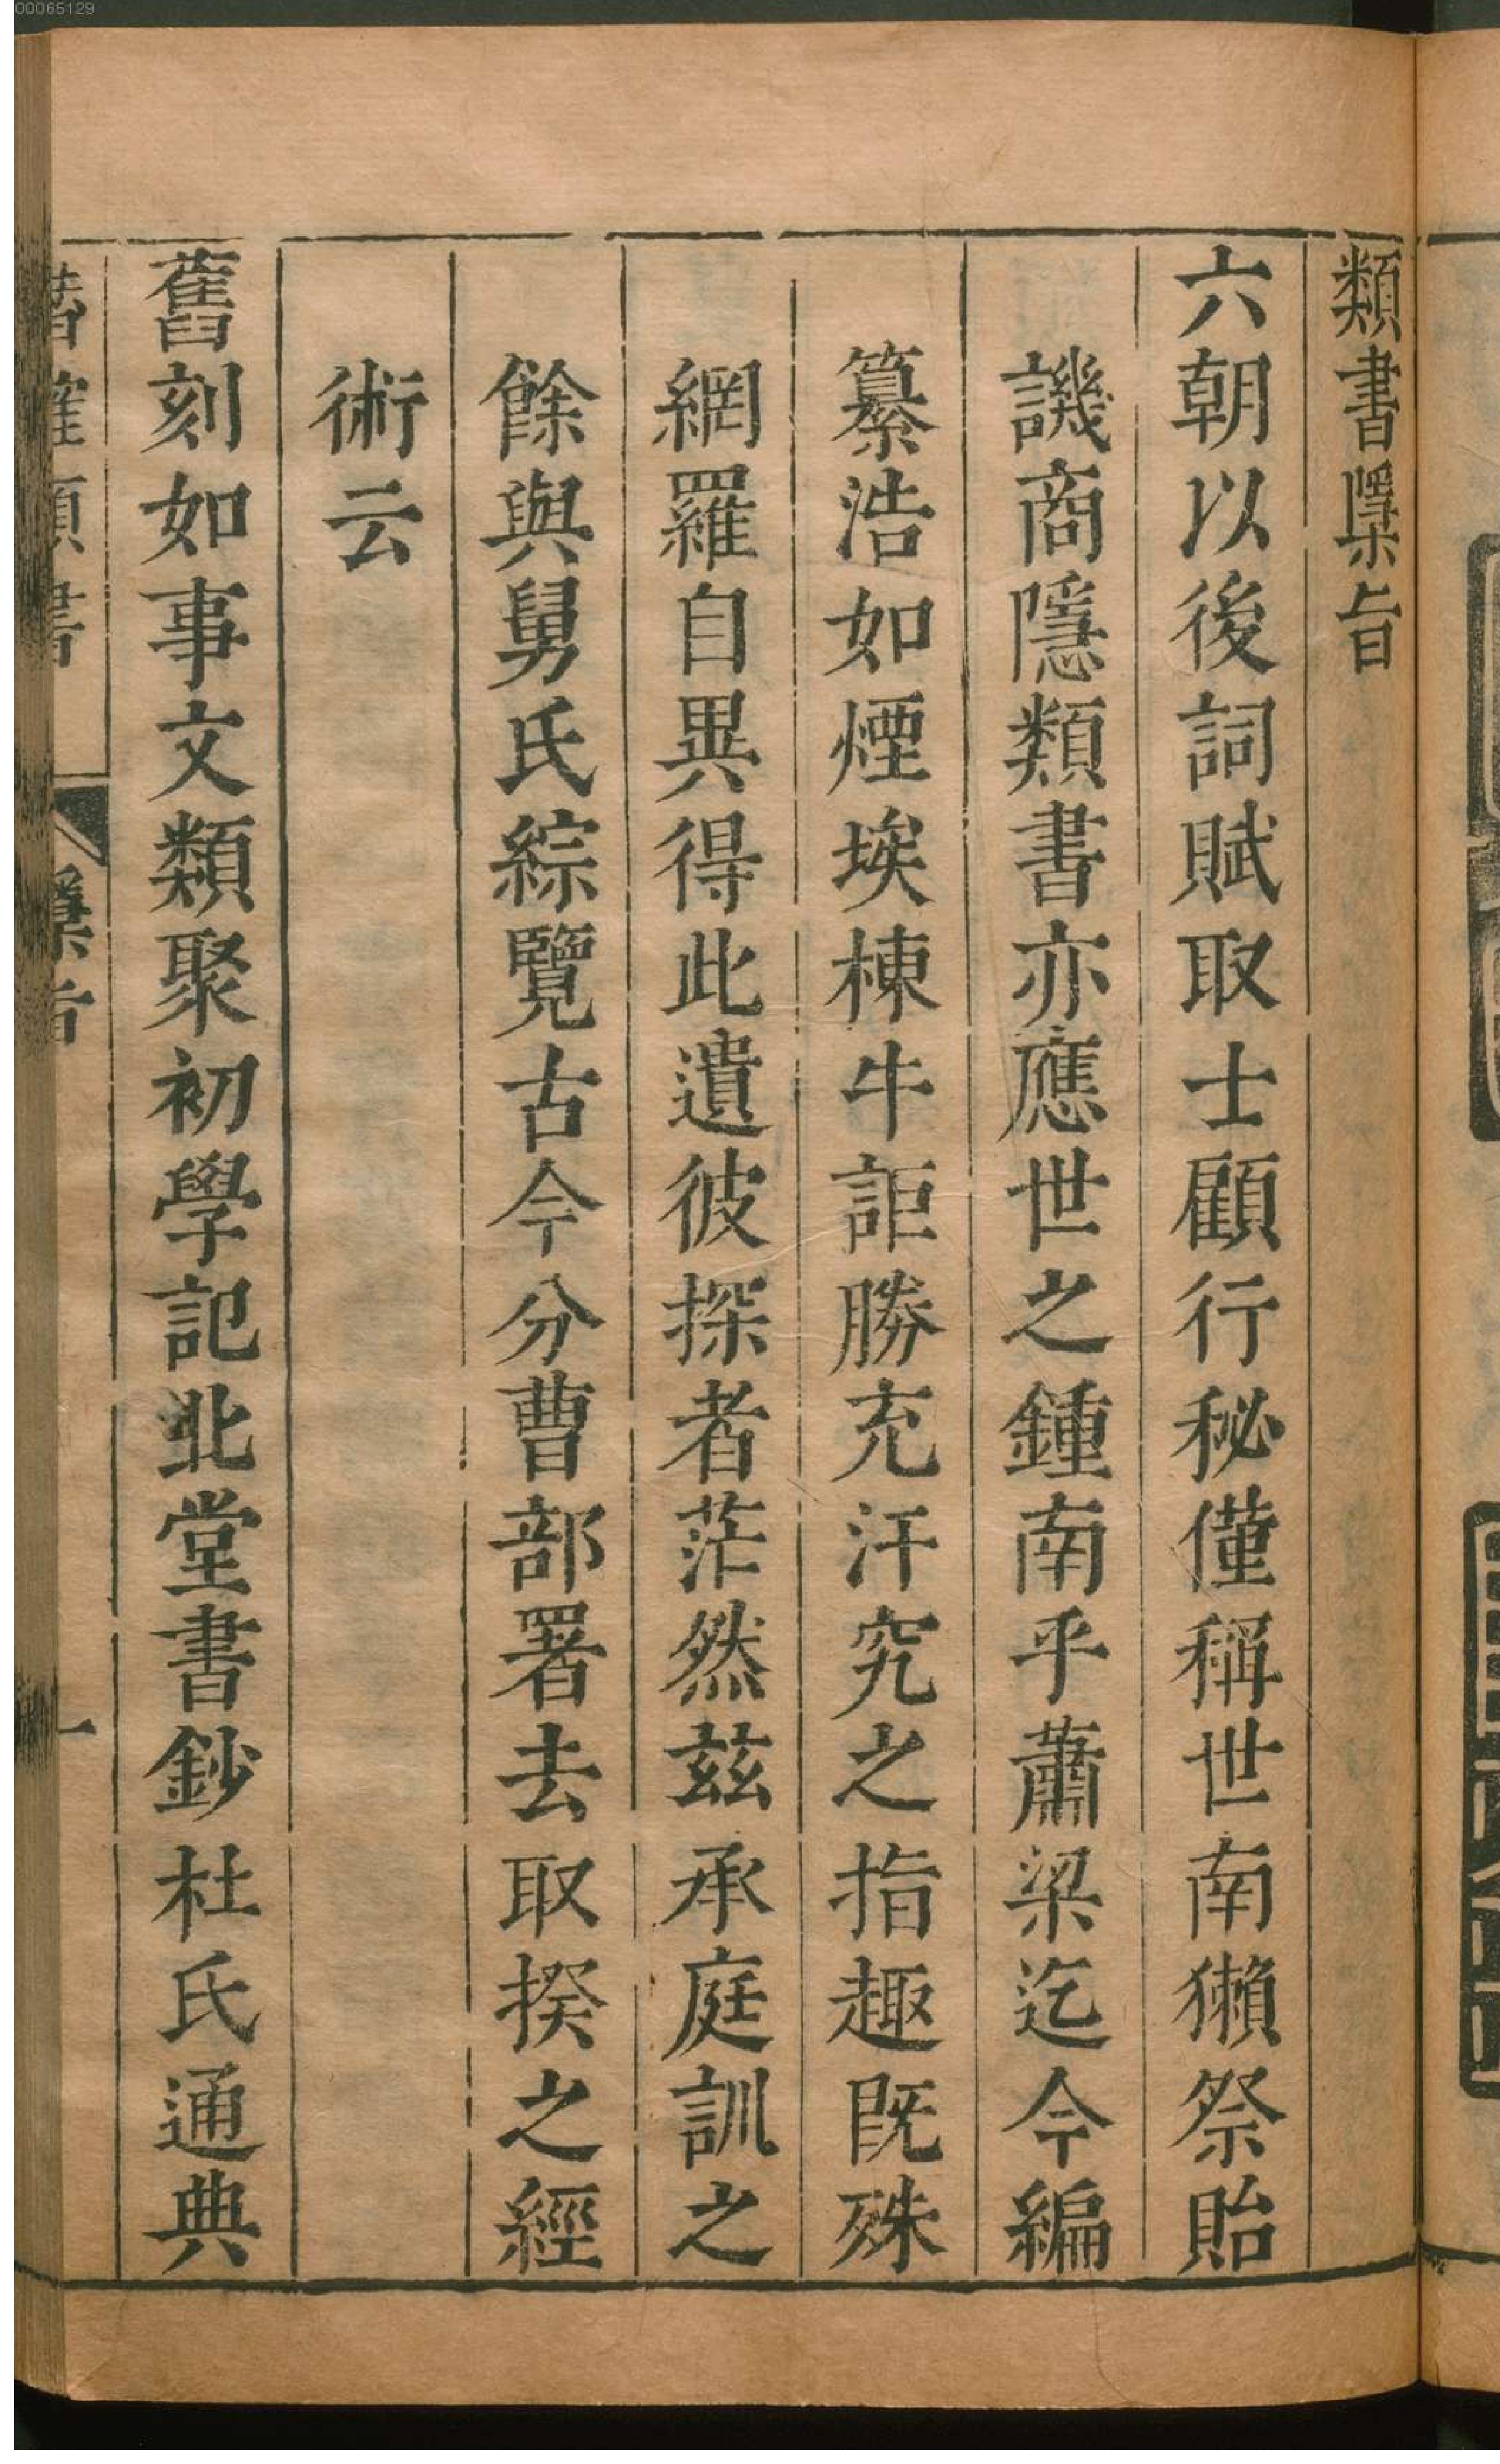 00065129
類書櫽旨
六朝以後詞賦取士顧行秘僅稱世南獺祭貽
譏商隱類書亦應世之鍾南乎蕭梁迄今編
纂浩如煙埃棟牛詎勝充汗究之指趣既殊
網羅自異得此遺彼探者茫然茲承庭訓之
餘與舅氏綜覽古今分曹部署去取揆之經
術云
舊刻如事文類聚初學記北堂書鈔杜氏通典
潛確類書 櫽旨 一